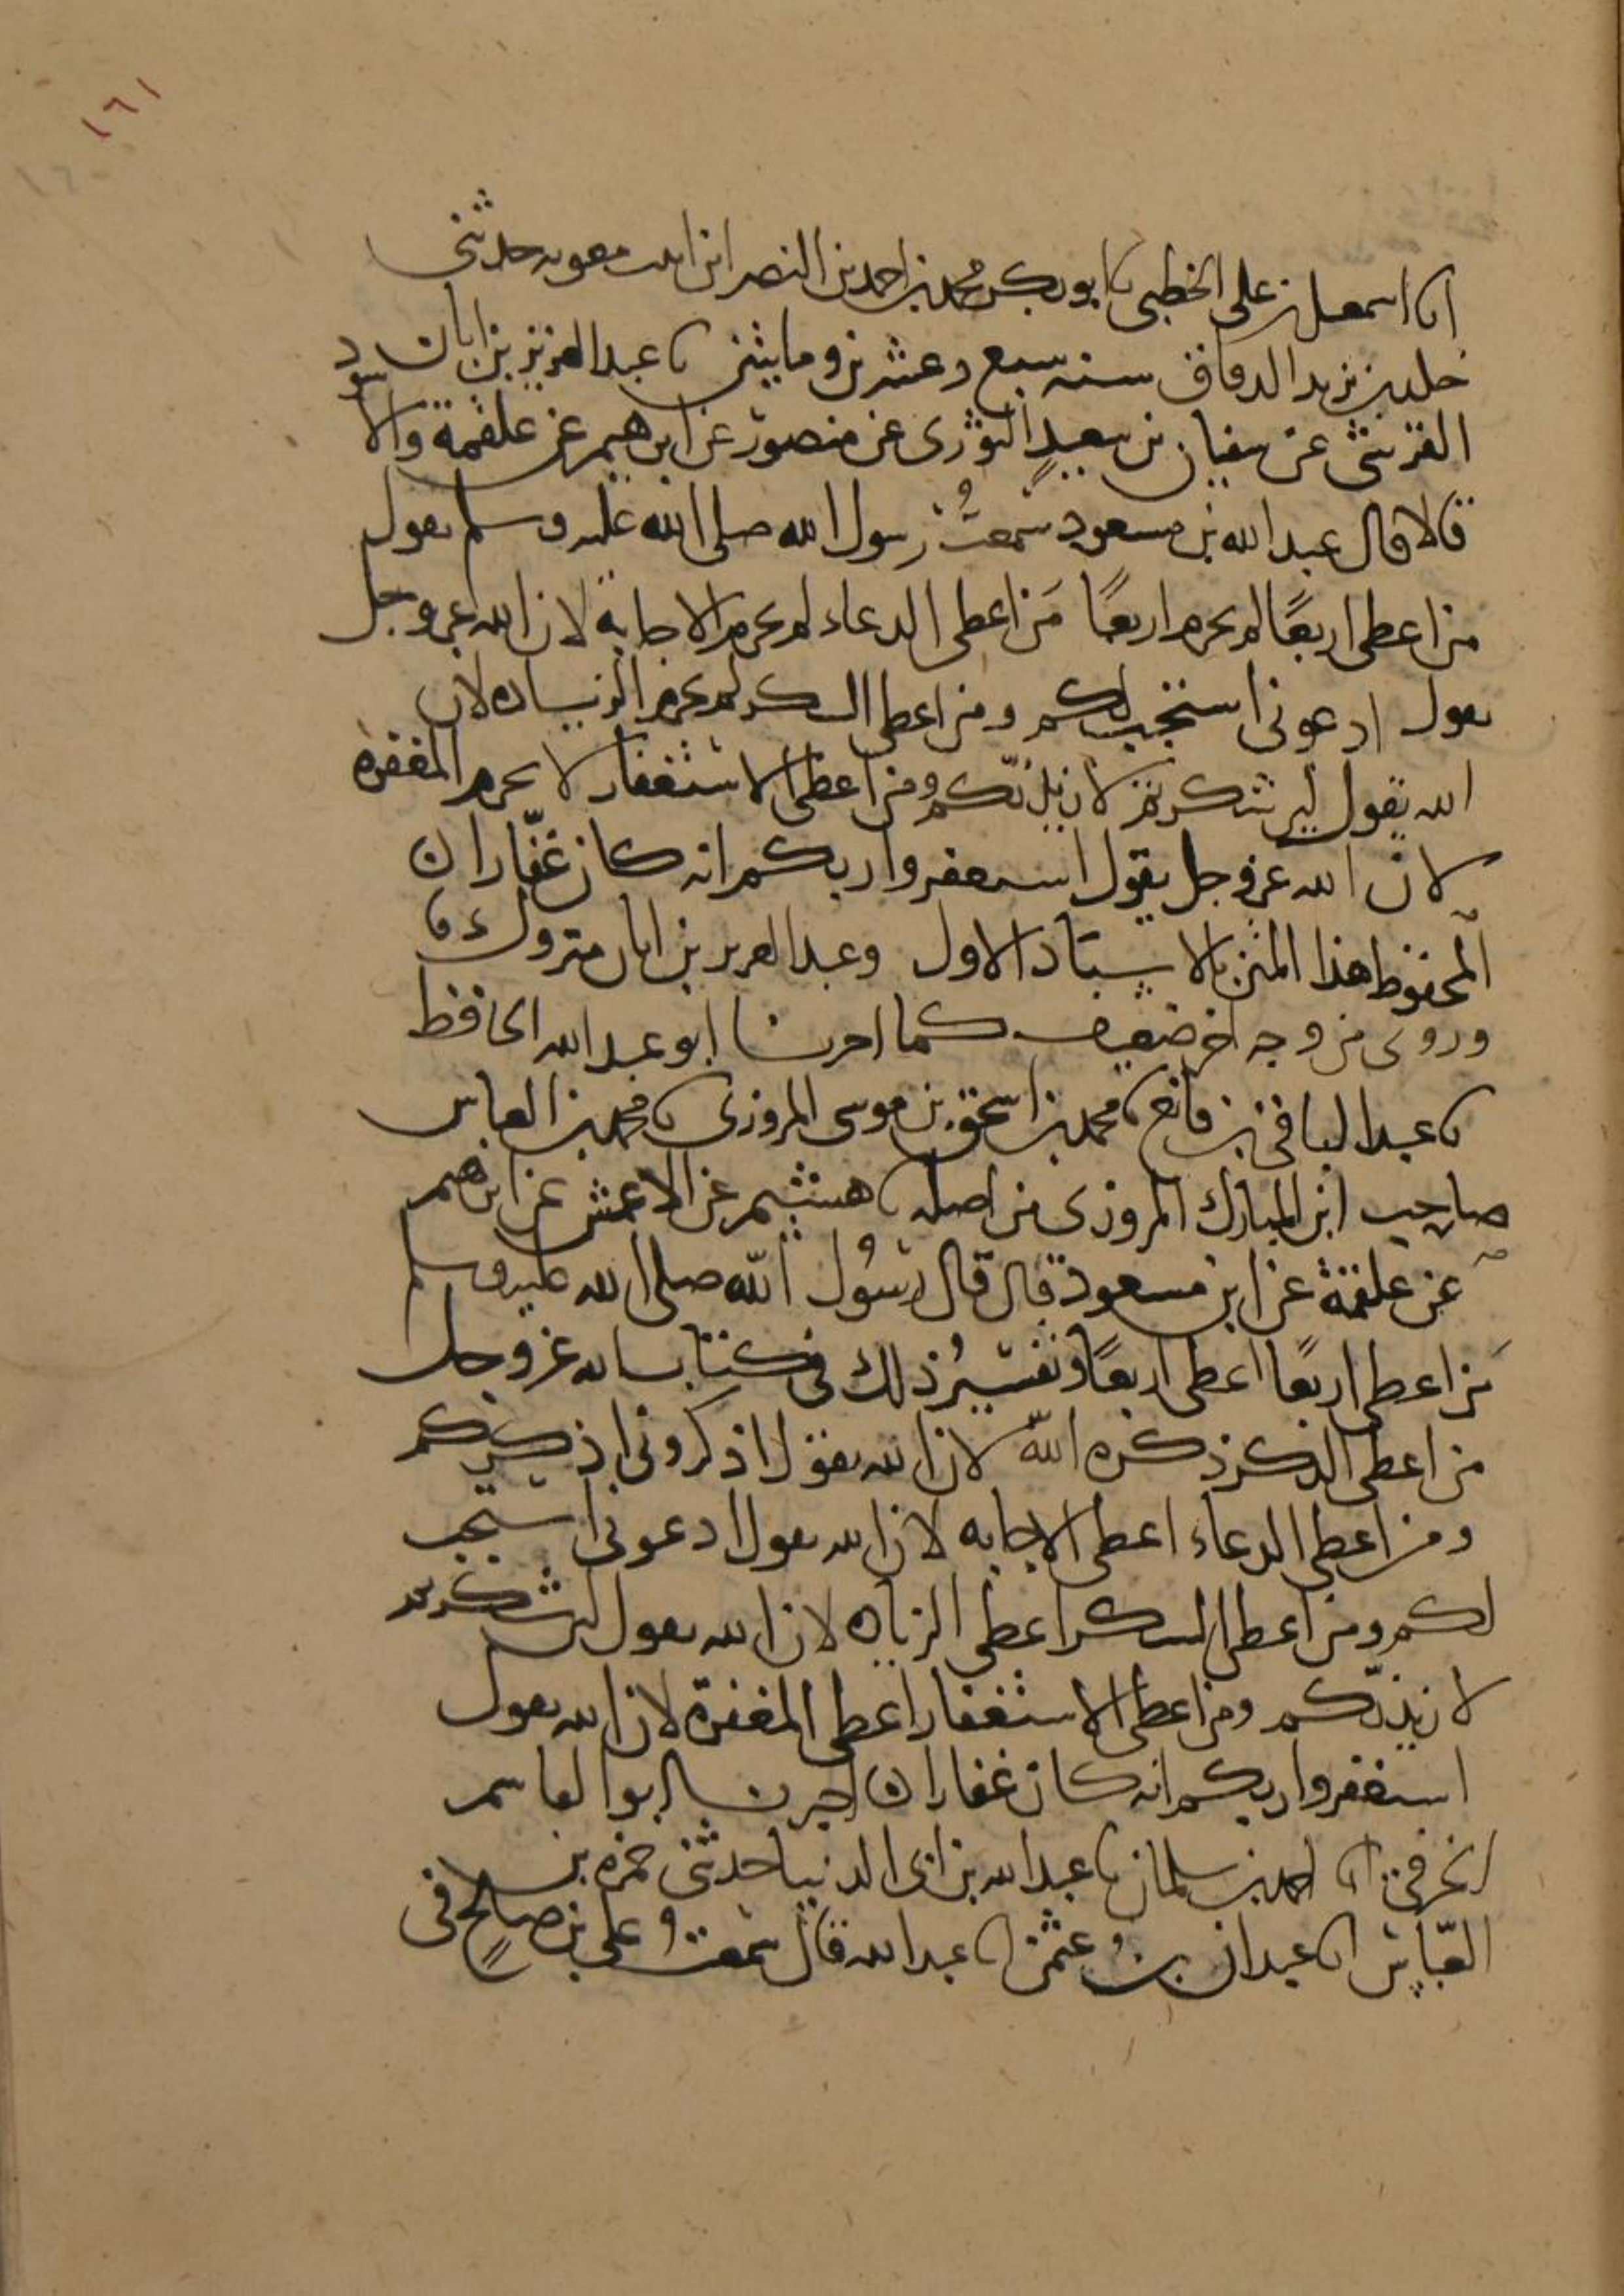 ١٦١
انا اسمعيل بن علي الخطبي نا ابو بكر محمد بن احمد بن النضر ابن ابنت معويه حدثني
خلد بن يزيد الدقاق سنه سبع وعشرين ومايتين نا عبد العزيز بن ابان
القرشي عن سفيان بن سعيد الثوري عن منصور عن ابرهيم عن علقمة والاسود
قالا قال عبد الله بن مسعود سمعت رسول الله صلى الله عليه وسلم يقول
من اعطى اربعًا لم يحرم اربعًا مَن اعطى الدعاء لم يحرم الاجابة لان الله عز وجل
يقول ادعوني استجب لكم ومن اعطى الشكر لم يحرم الزياده لان
الله يقول لين شكرتم لازيدنّكم ومن اعطى الاستغفار لا يحرم المغفرة
لان الله عز وجل يقول استغفروا ربكم انه كان غفّارا ن
المحفوظ هذا المتن بالاسناد الاول وعبد العزيز بن ابان متروك
وروي من وجه اخر ضعيف كما اخبرنا ابو عبد الله الحافظ
نا عبد الباقي بن قانع نا محمد بن اسحق بن موسى المروزي نا محمد بن العباس
صاحب ابن المبارك المروزي من اصله نا هشيم عن الاعمش عن ابرهيم
عن علقمة عن ابن مسعود قال قال رسُول اللّه صلى الله عليه وسلم
مَن اعطى اربعًا اعطى اربعًا وتفسيرُ ذلك في كتاب الله عز وجل
من اعطى الذكر ذكره اللّه لان الله يقول اذكروني اذكركم
ومن اعطى الدعاء اعطى الاجابه لان الله يقول ادعوني استجب
لكم ومن اعطى الشكر اعطى الزياده لان الله يقول لين شكرتم
لازيدنّكم ومن اعطى الاستغفار اعطى المغفرة لان الله يقول
استغفروا ربكم انه كان غفارا ن اخبرنا ابو القاسم
الخرفي انا احمد بن سلمان نا عبد الله بن ابي الدنيا حدثني حمزه بن
العبّاس انا عبدان بنُ عثمن انا عبد الله قال سمعتُ علي بن صالحٍ في